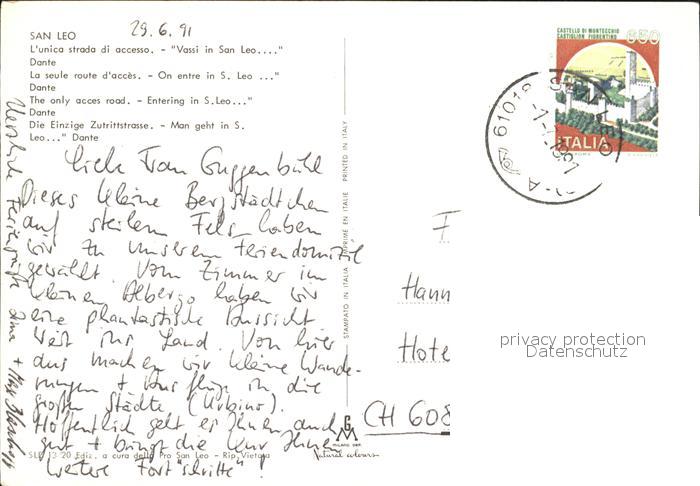 29.6.91
SAN LEO
L'unica strada di accesso. - "Vassi in San Leo...."
Dante
La seule route d'accès. - On entre in S. Leo ..."
Dante
The only acces road. - Entering in S.Leo..."
Dante
Die Einzige Zutrittstrasse. - Man geht in S.
Leo..." Dante
Liebe Frau Guggenbühl
Dieses kleine Bergstädtchen
auf steilem Fels haben
wir zu unserem Feriendomizil
gewählt. Vom Zimmer im
kleinen Albergo haben wir
eine phantastische Aussicht
weit ins Land. Von hier
aus machen wir kleine Wande-
rungen + Ausflüge in die
großen Städte (Urbino).
Hoffentlich geht es Ihnen auch
gut + bringt die Kur Ihnen
weitere Fort"schritte"!
Herzliche Feriengrüsse
+ Max
SLE 13 20 Ediz. a cura della Pro San Leo - Rip. Vietata
STAMPATO IN ITALIA IMPRIME EN ITALIE PRINTED IN ITALY
G
M
MILANO DEP.
Natural colours
CASTELLO DI MONTECCHIO
CASTIGLION FIORENTINO
650
ITALIA
61018
F
Hann
Hote
CH 608
privacy protection
Datenschutz